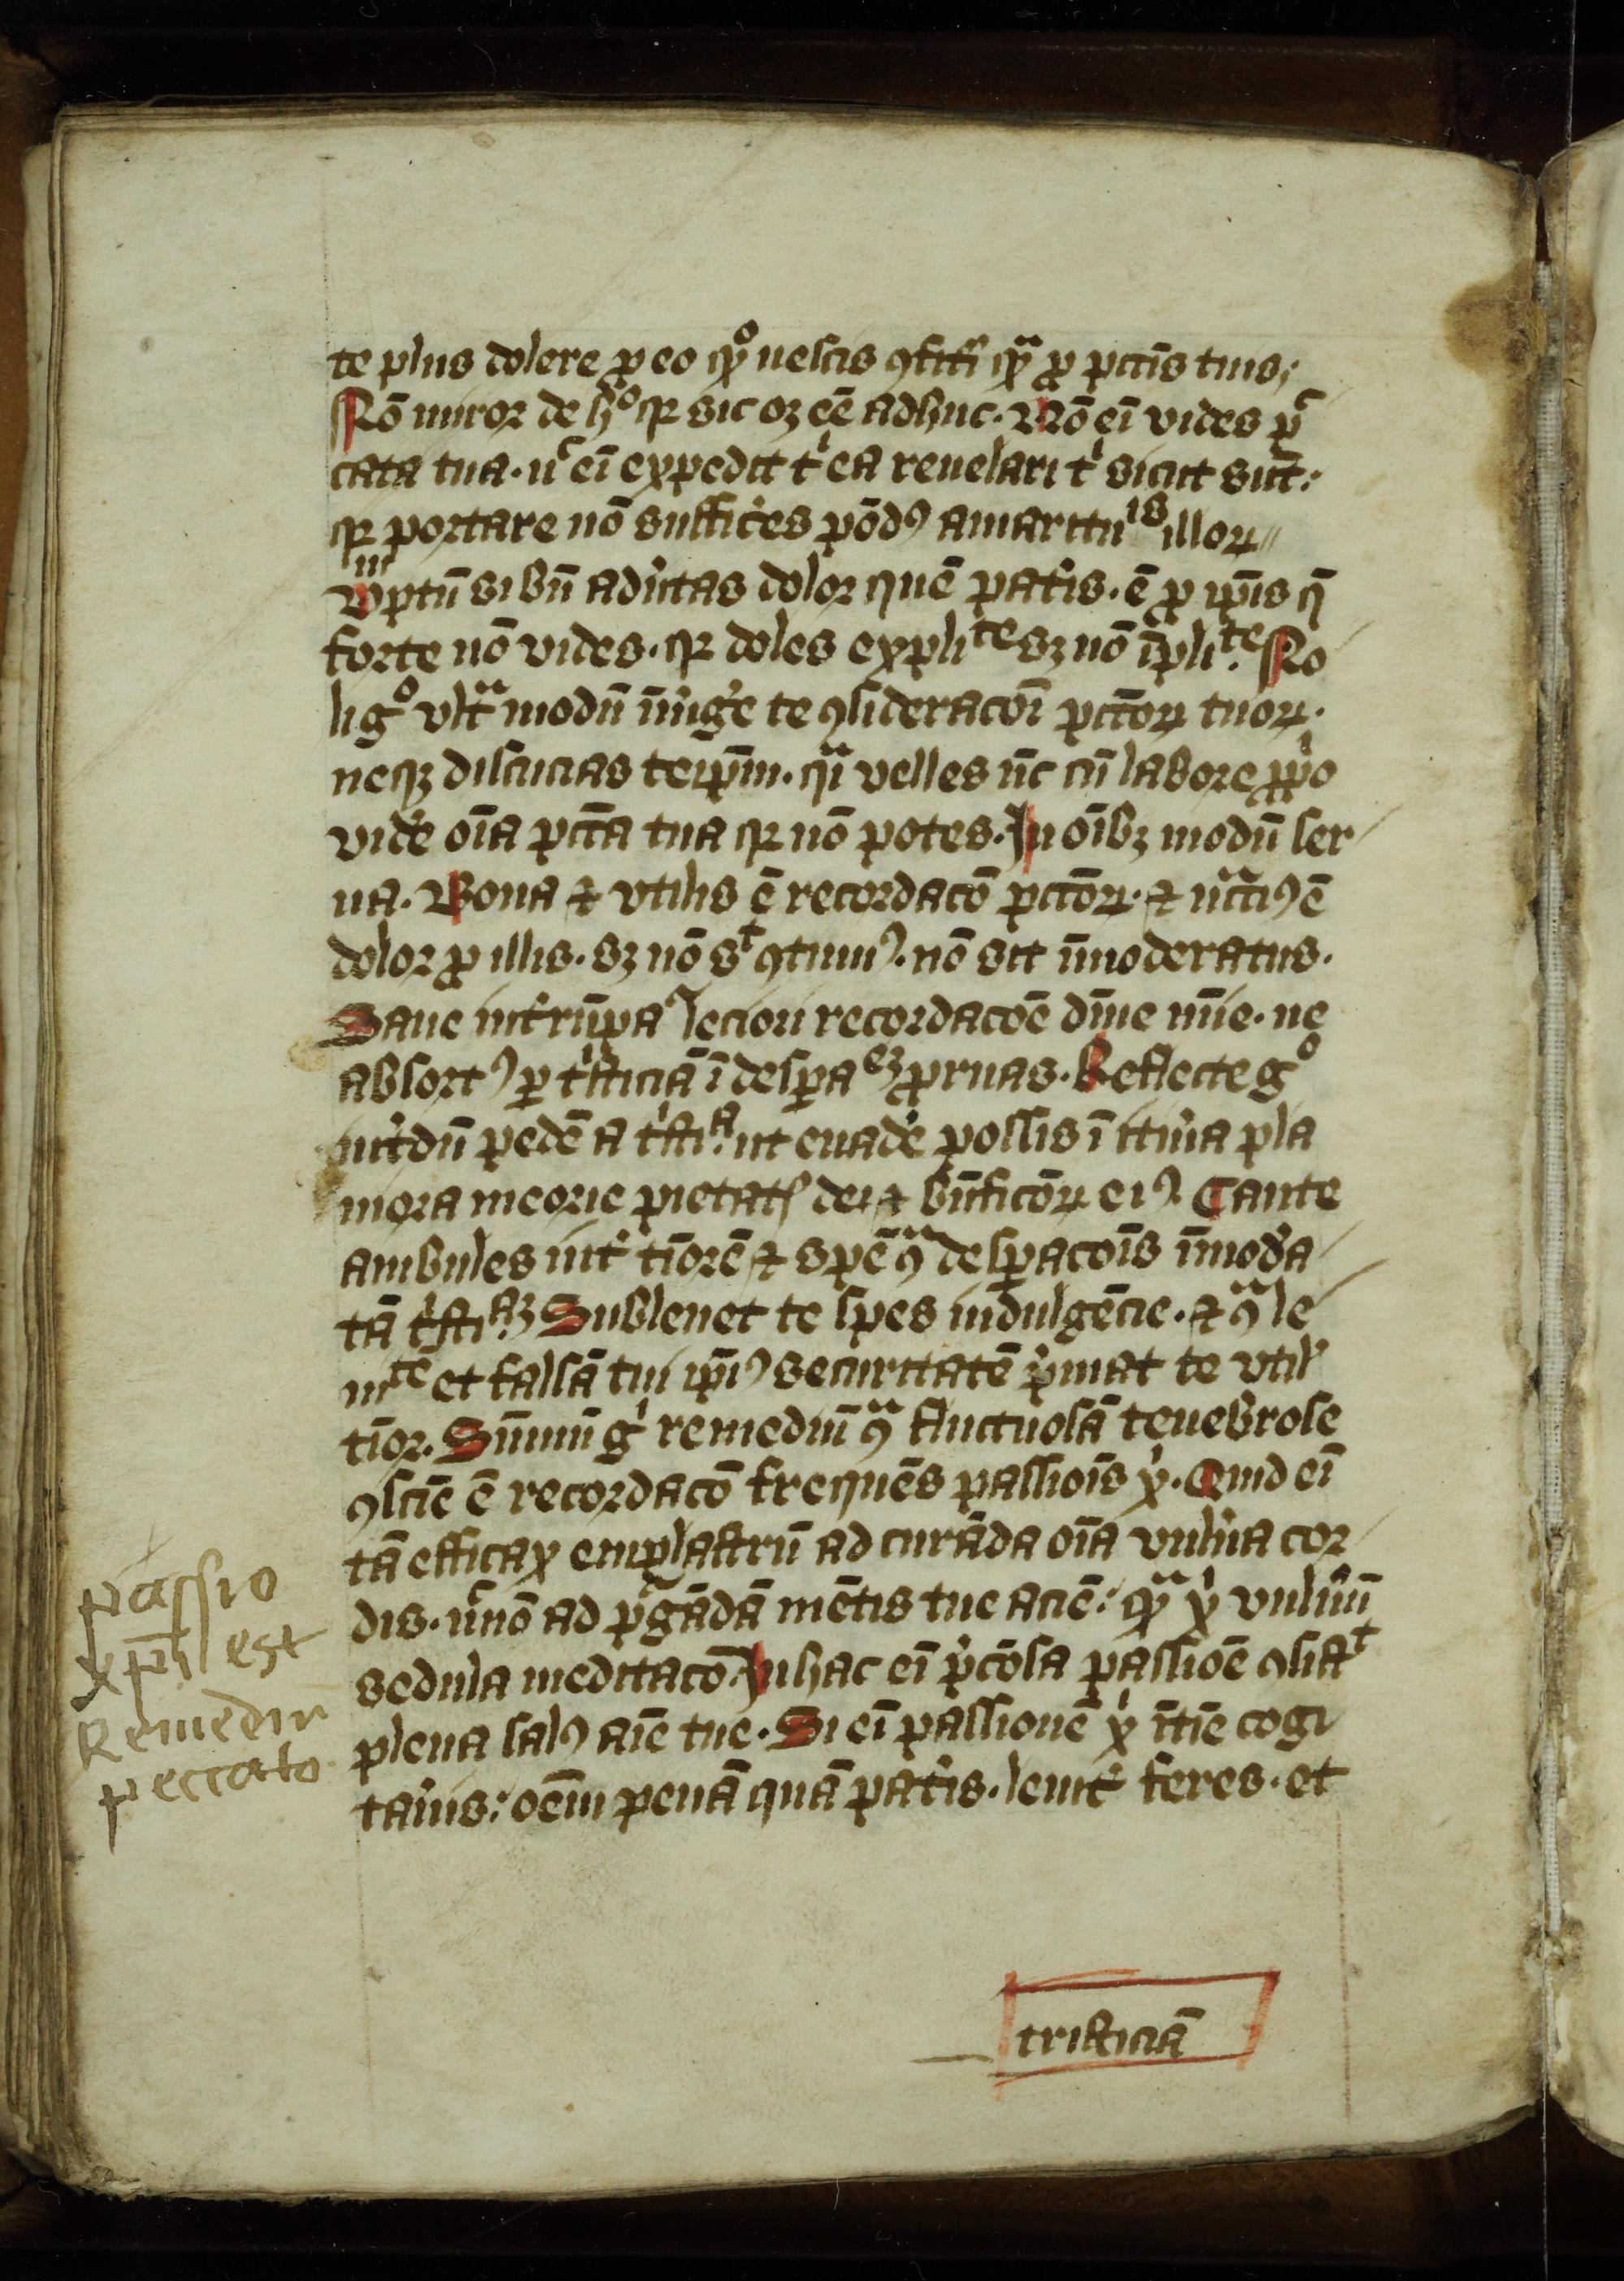 te plus dolere ꝓ eo qͦ nescis ꝯfitͥi qᷓ ꝓ pctīs tuis;
Nō miror de hͦ qꝛ sic oꝫ eē adhuc. Nō eī vides pͨ
cata tua. nͨ eī expedit tͥ ea reuelari tͥ sicut sūt:
qꝛ portare nō sufficͥes pōdꝰ amaritu^is illoꝝ
ptū si bn̄ aduͥtas dolor quē patͥis. ē ꝓ ip̄is q̄
forte nō vides. qꝛ doles expli^te sꝫ nō īpli^te. No
li gͦ vltᷓ modū īmͥgͥe te ꝯsideracōī pctōꝝ tuoꝝ.
neqꝫ discucias teip̄m. qͣi velles nūc cū labore ꝓpͥo
vidͥe oīa pctā tua qꝛ nō potes. In oībꝫ modū ser
ua. Bona ⁊ vtilis ē recordacō pctōꝝ. ⁊ nc̄cͣiꝰ ē
dolor ꝓ illis. sꝫ nō s^t ꝯtinuꝰ. nō sit īmoderatus.
Saue intͥrūpa leciori recordacōe diuīe mīe. ne
absortꝰ ꝑ tͥsticiā ī despa^eꝫ ꝓruas. Reflecte gͦ
intͥdū pedē a tͥsti^a. ut euadͥe possis ī itinͥa pla
niora meōrie pietatꝭ dei ⁊ bn̄ficōꝝ eiꝰ. Caute
ambules intͥ timorē ⁊ spē ꝯͣ despacōīs īmodͥa
tā tͥsti^aꝫ. Subleuet te spes indulgēcie. ⁊ ꝯͣ le
ui^te et falsā tui ip̄iꝰ securitatē pͥmat te vtilͥ
tīor. Summū gͥ remediū ꝯͣ fluctuosā tenebrose
ꝯscīe ē recordacō frequēs passiōis xͥ. Quid eī
tā efficax emplastrū ad curāda oīa vulnͥa cor
dis. nͨnō ad pͬgādā mētis tue aciē: qᷓ xͥ vulnͥū
sedula meditacō. In hac eī pͨosa passiōe ꝯsist^t
plena salꝰ aīe tue. Si eī passionē xͥ ītie cogi
tauͥis: oēm penā quā patͥis. leuitͥ feres. et
passio
xp̄i est
Remediū
peccato
tristiciā